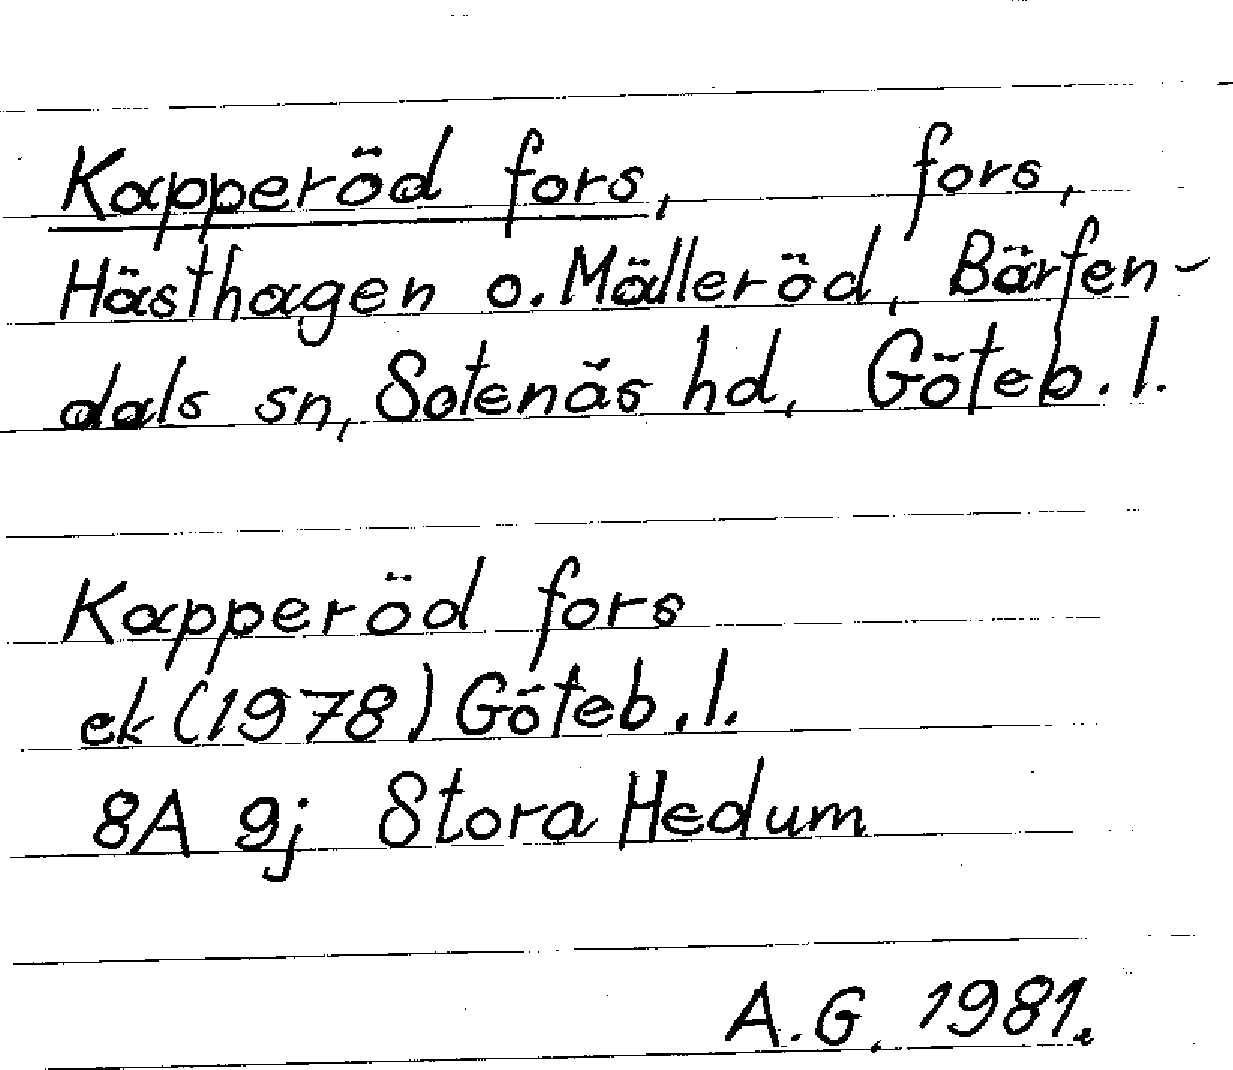 Kapperöd fors, fors,
Hästhagen o. Mälleröd, Bärfen-
dals sn, Sotenäs hd, Göteb. l.
Kapperöd fors
ek (1978) Göteb. l.
8A 9j Stora Hedum
A.G. 1981.